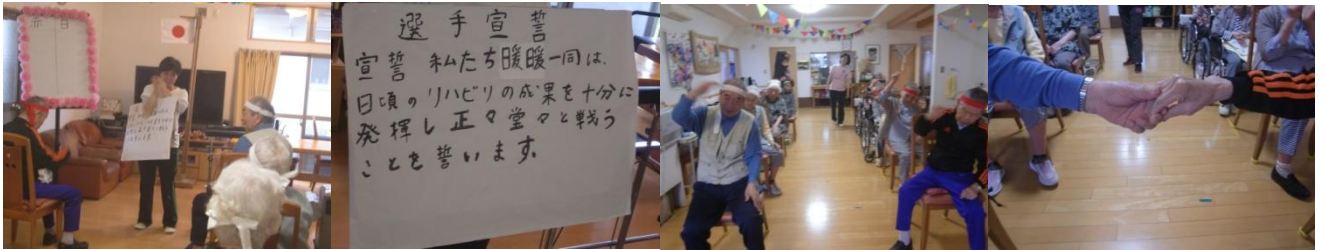 選手宣誓
宣誓 私たち暖暖一同は、
日頃のリハビリの成果を十分に
発揮し正々堂々と戦う
ことを誓います。